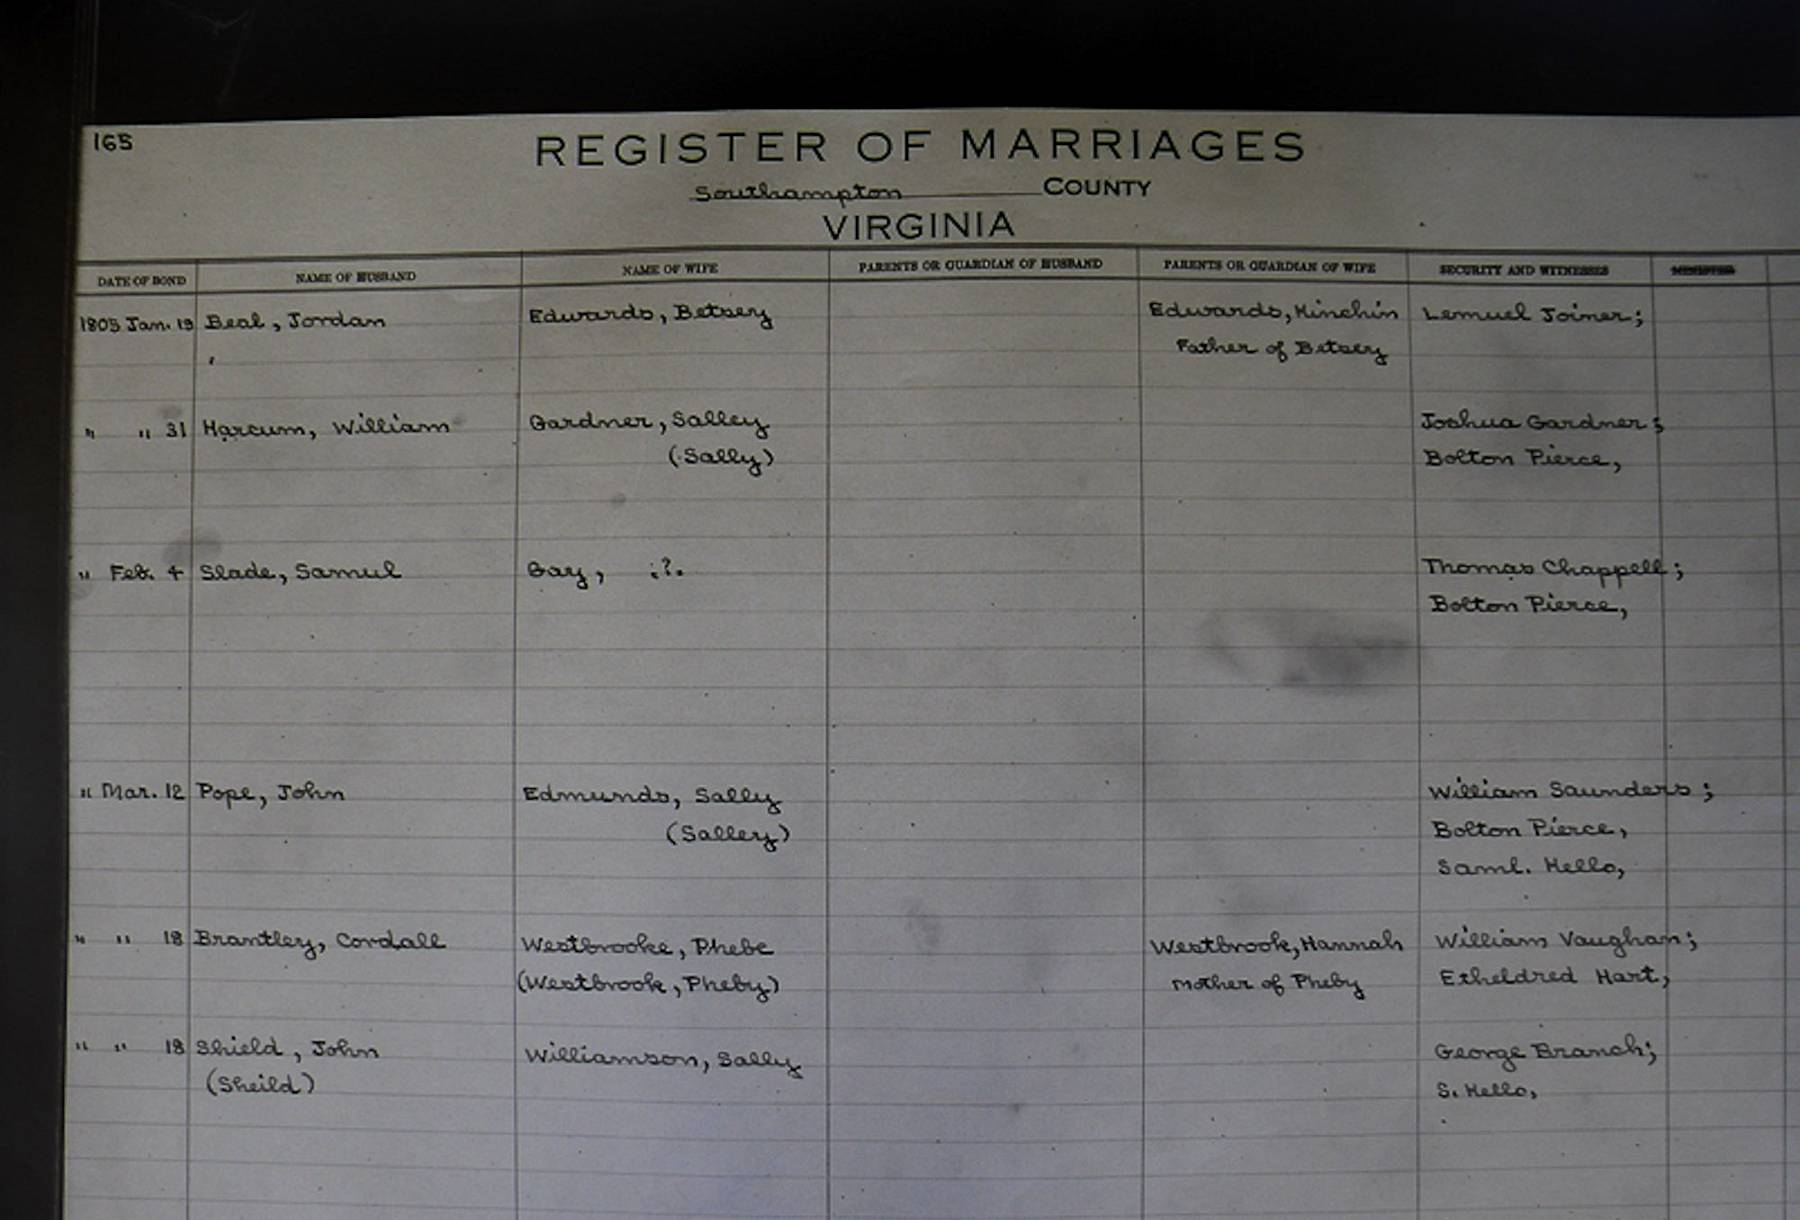 165
REGISTER OF MARRIAGES
Southampton COUNTY
VIRGINIA
DATE OF BOND NAME OF HUSBAND NAME OF WIFE PARENTS OR GUARDIAN OF HUSBAND PARENTS OR GUARDIAN OF WIFE SECURITY AND WITNESSES MINISTER
1805 Jan. 19 Beal, Jordan Edwards, Betsey Edwards, Kinchin Lemuel Joiner;
Father of Betsey
" " 31 Harcum, William Gardner, Salley Joshua Gardner;
(Sally) Bolton Pierce,
" Feb. 4 Slade, Samuel Gay, .?. Thomas Chappell;
Bolton Pierce,
" Mar. 12 Pope, John Edmunds, Sally William Saunders;
(Salley) Bolton Pierce,
Saml. Kello,
" " 18 Brantley, Cordall Westbrooke, Phebe Westbrook, Hannah William Vaughan;
(Westbrook, Pheby) mother of Pheby Etheldred Hart,
" " 18 Shield, John Williamson, Sally George Branch;
(Sheild) S. Kello,